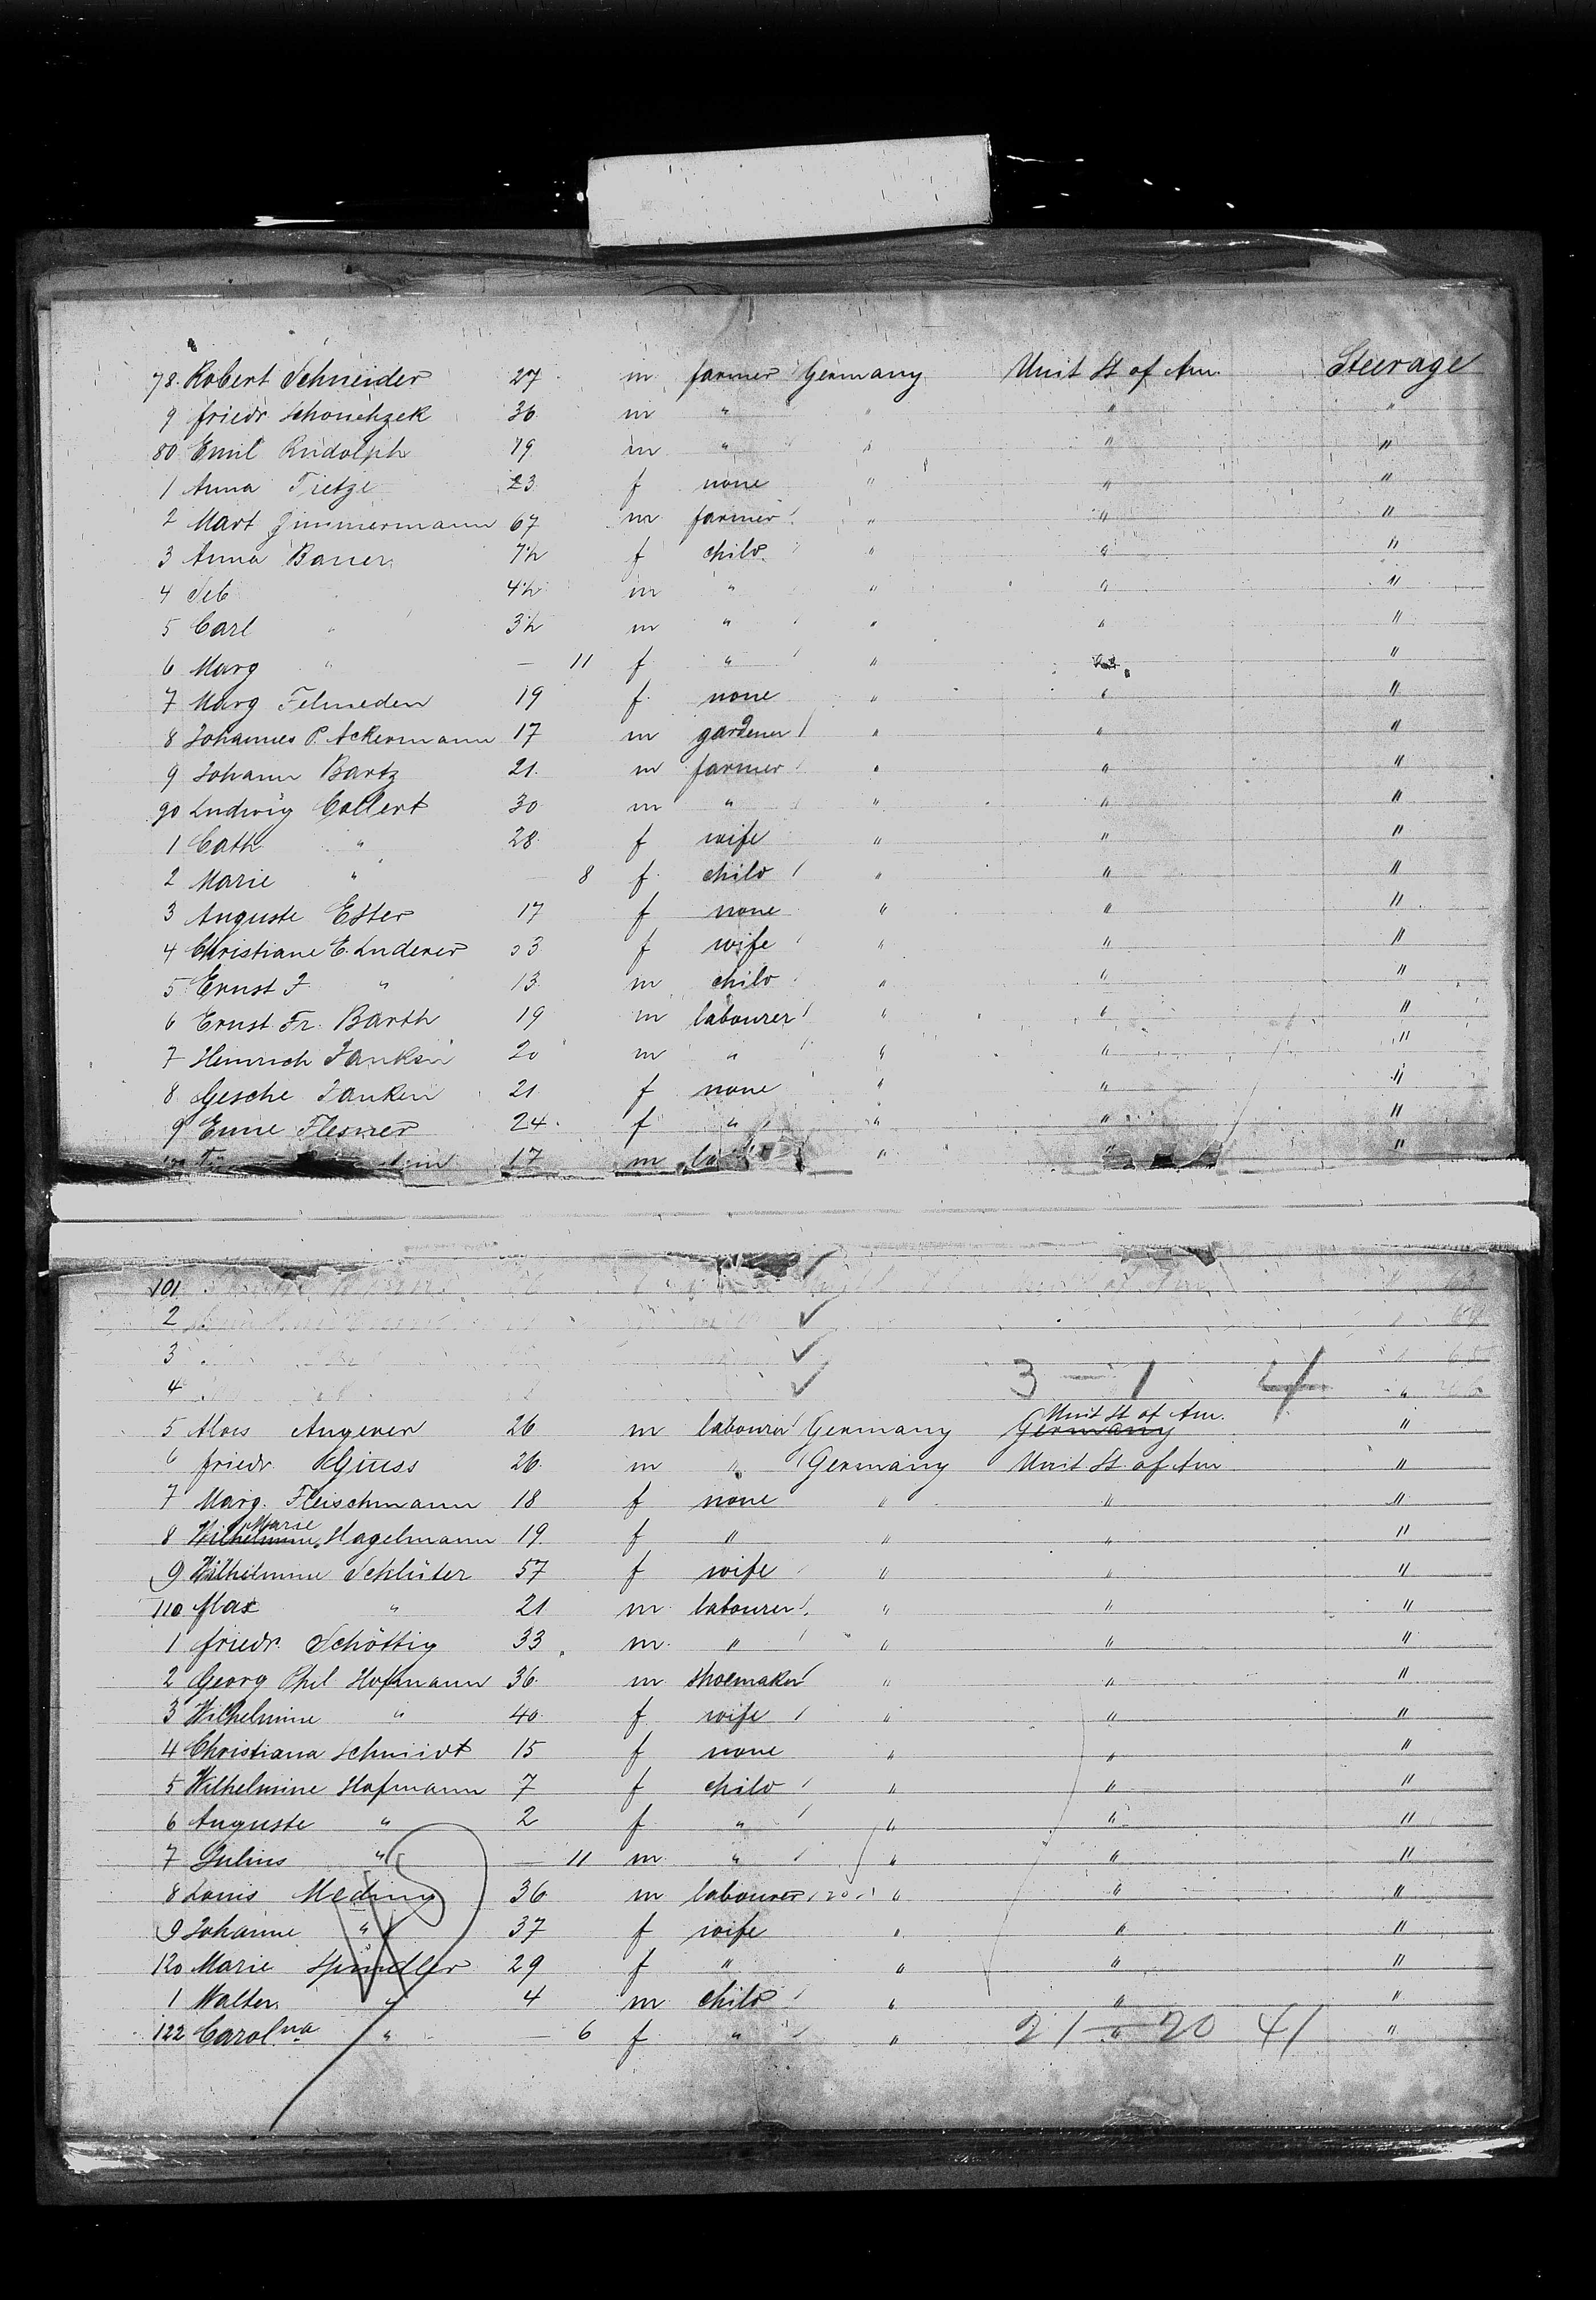 78. Robert Schneider 27 m farmer Germany Unit St of Am. Steerage
9 friedr. Schonetzek 36 m " " " "
80 Emil Rudolph 19 m " " " "
1 Anna Tietze 23 f none " " "
2 Mart Zimmermann 67 m farmer " " "
3 Anna Bauer 7½ f child " " "
4 Seb 4½ m " " " "
5 Carl " 3½ m " " " "
6 Marg " — 11 f " " "
7 Marg Felmeden 19 f none " " "
8 Johannes P. Ackermann 17 m gardener " " "
9 Johann Bartz 21. m farmer " " "
90 Ludwig Collert 30 m " " " "
1 Cath " 28 f wife " " "
2 Marie " — 8 f child " " "
3 Auguste Ester 17 f none " " "
4 Christiane E. Luderer 33 f wife " " "
5 Ernst F " 13 m child " " "
6 Ernst Fr. Barth 19 m labourer " " "
7 Heinrich Janken 20 m " " " "
8 Gesche Janken 21 f none " " "
9 Enne Flesner 24 f " " " "
17 m " " "
101
2
3
4 3 — 1 4
5 Alois Angerer 26 m labourer Germany Germany Unit St of Am. "
6 friedr. Giuss 26 m " Germany Unit St of Am "
7 Marg. Fleischmann 18 f none " " "
8 Wilhelmine Marie Hagelmann 19 f " " " "
9 Wilhelmine Schlüter 57 f wife " " "
110 Max " 21 m labourer " " "
1 friedr. Schöttig 33 m " " " "
2 Georg Phil Hofmann 36 m shoemaker " " "
3 Wilhelmine " 40 f wife " " "
4 Christiana Schmidt 15 f none " " "
5 Wilhelmine Hofmann 7 f child " " "
6 Auguste " 2 f " " " "
7 Julius " — 11 m " " " "
8 Louis Meding 36 m labourer 20 " " "
9 Johanne " 37 f wife " " "
120 Marie Spindler 29 f " " " "
1 Walter " 4 m child " " "
122 Carolna " — 6 f " " " "
21 — 20 41